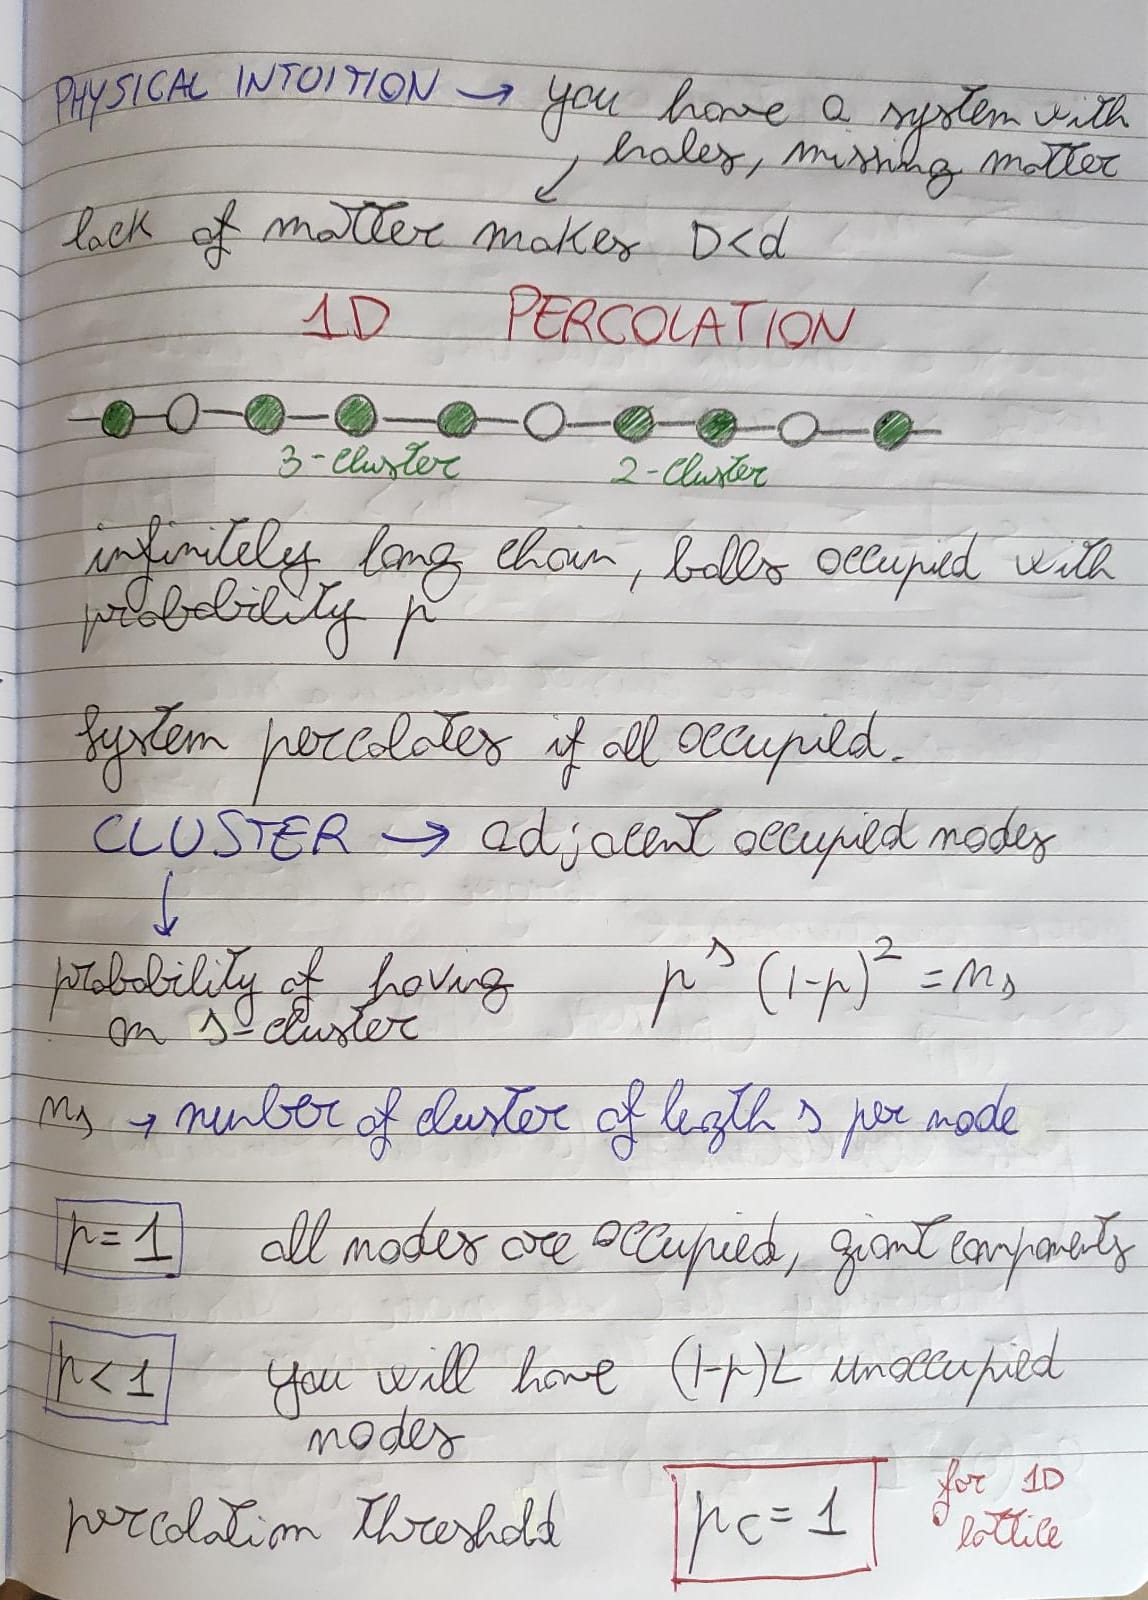 PHYSICAL INTUITION → you have a system with
holes, missing matter
lack of matter makes D<d
1D PERCOLATION
3-cluster 2-cluster
infinitely long chain, balls occupied with
probability p
System percolates if all occupied.
CLUSTER → adjacent occupied nodes
probability of having p^s (1-p)^2 = n_s
an s-cluster
n_s → number of cluster of length s per node
p=1 all nodes are occupied, giant components
p<1 you will have (1-p)L unoccupied
nodes
percolation threshold p_c = 1 for 1D
lattice